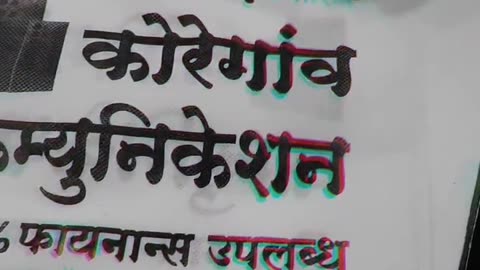 कोरेगांव
म्युनिकेशन
फायनान्स उपलब्ध